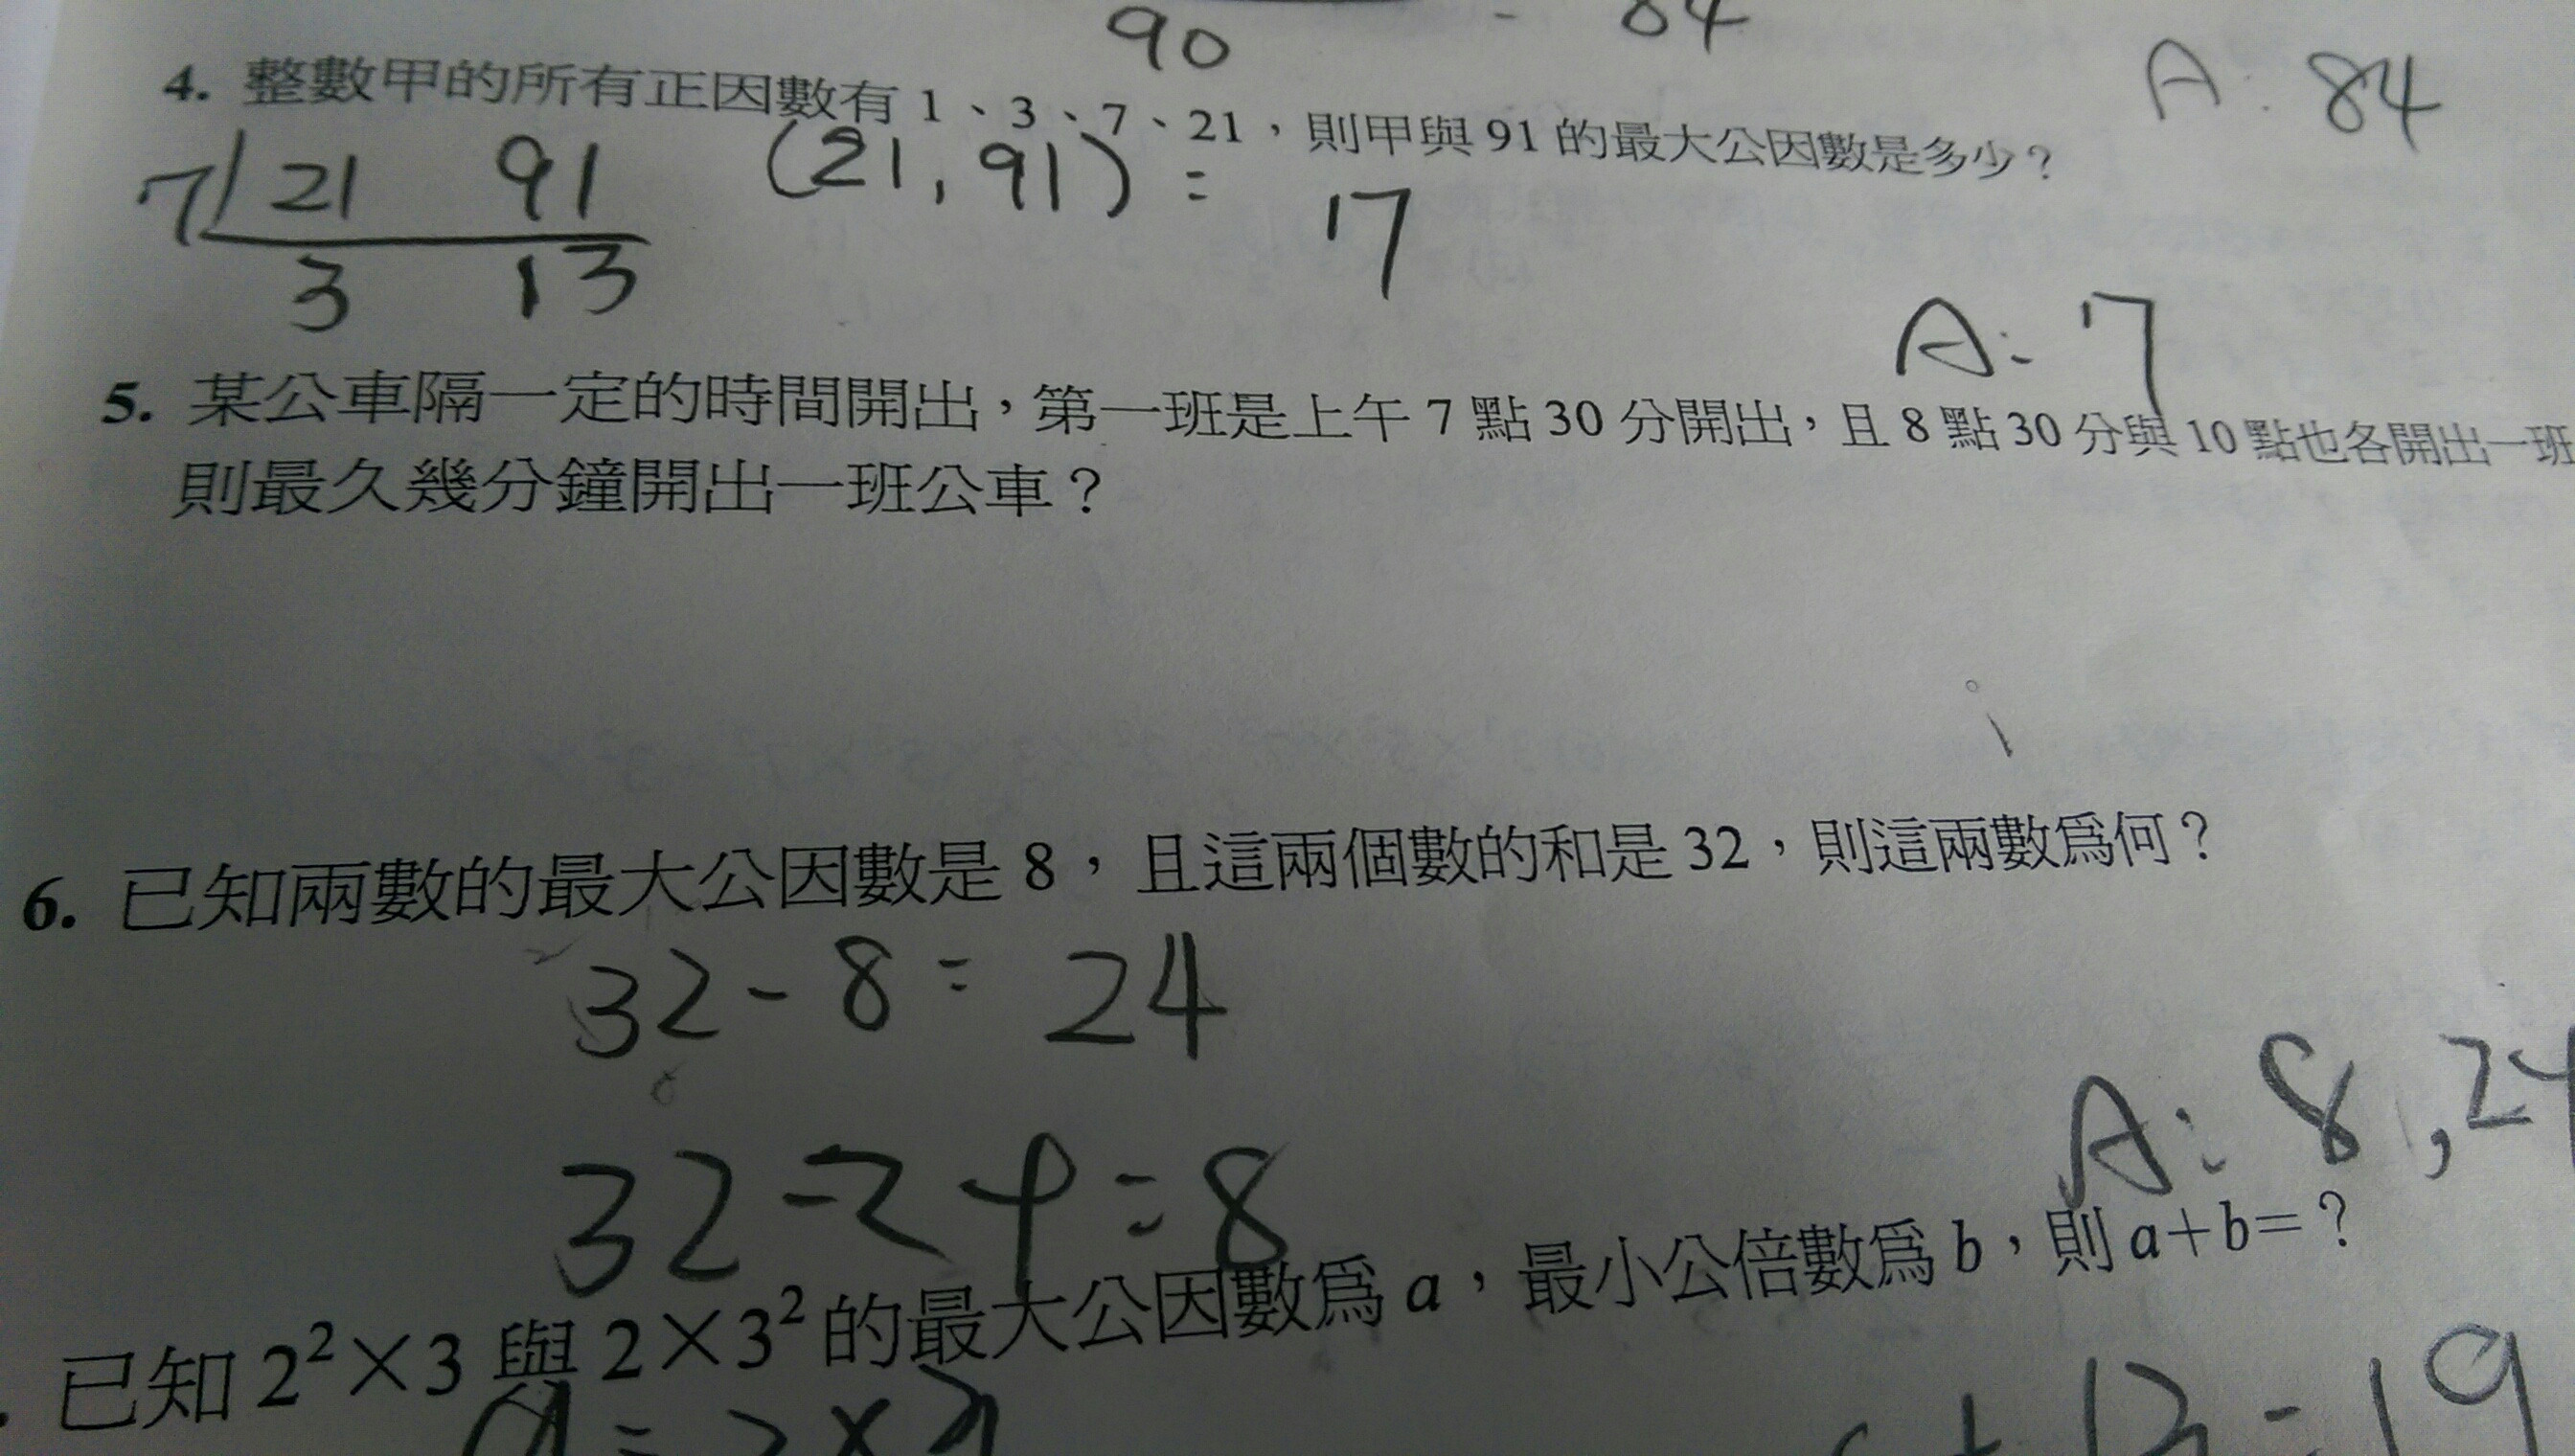 90 - 84
A: 84
4. 整數甲的所有正因數有 1、3、7、21，則甲與 91 的最大公因數是多少？
7 21 91
3 13
(21, 91) = 7
A: 7
5. 某公車隔一定的時間開出，第一班是上午 7 點 30 分開出，且 8 點 30 分與 10 點也各開出一班
則最久幾分鐘開出一班公車？
6. 已知兩數的最大公因數是 8，且這兩個數的和是 32，則這兩數爲何？
32 - 8 = 24
32 - 24 = 8
A: 8, 24
已知 2²×3 與 2×3² 的最大公因數爲 a，最小公倍數爲 b，則 a+b=？